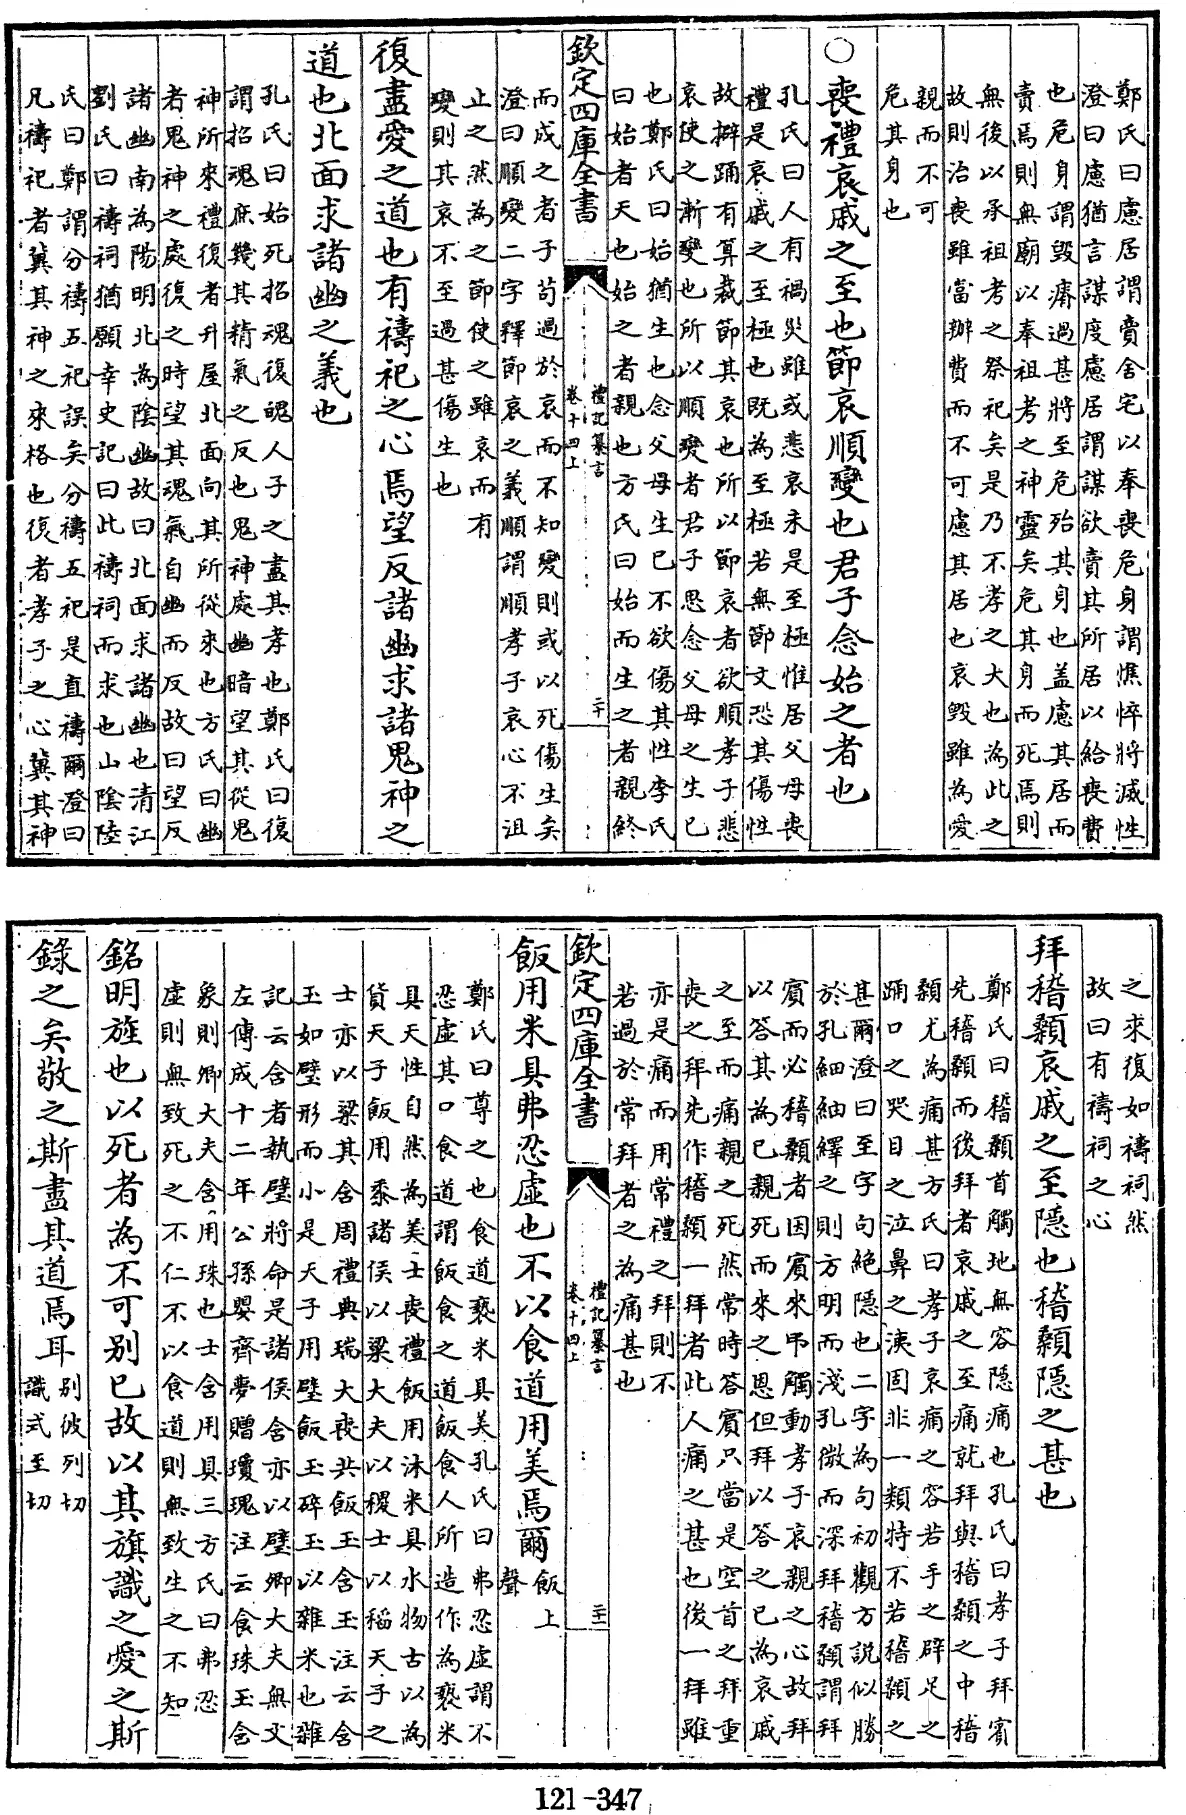 鄭氏曰慮居謂賣舍宅以奉喪危身謂憔悴將滅性
澄曰慮猶言謀度慮居謂謀欲賣其所居以給喪費
也危身謂毀瘠過甚將至危殆其身也盖慮其居而
賣焉則無廟以奉祖考之神靈矣危其身而死焉則
無後以承祖考之祭祀矣是乃不孝之大也為此之
故則治喪雖當辦費而不可慮其居也哀毀雖為愛
親而不可
危其身也
○喪禮哀戚之至也節哀順變也君子念始之者也
孔氏曰人有禍災雖或悲哀未是至極惟居父母喪
禮是哀戚之至極也既為至極若無節文恐其傷性
故擗踊有算裁節其哀也所以節哀者欲順孝子悲
哀使之漸變也所以順變者君子思念父母之生已
也鄭氏曰始猶生也念父母生已不欲傷其性李氏
曰始者天也始之者親也方氏曰始而生之者親終
欽定四庫全書
禮記纂言
卷十四上
二十
而成之者子苟過於哀而不知變則或以死傷生矣
澄曰順變二字釋節哀之義順謂順孝子哀心不沮
止之然為之節使之雖哀而有
變則其哀不至過甚傷生也
復盡愛之道也有禱祀之心焉望反諸幽求諸鬼神之
道也北面求諸幽之義也
孔氏曰始死招魂復魄人子之盡其孝也鄭氏曰復
謂招魂庶幾其精氣之反也鬼神處幽暗望其從鬼
神所來禮復者升屋北面向其所從來也方氏曰幽
者鬼神之處復之時望其魂氣自幽而反故曰望反
諸幽南為陽明北為陰幽故曰北面求諸幽也清江
劉氏曰禱祠猶願幸史記曰此禱祠而求也山陰陸
氏曰鄭謂分禱五祀誤矣分禱五祀是直禱爾澄曰
凡禱祀者冀其神之來格也復者孝子之心冀其神
之求復如禱祠然
故曰有禱祠之心
拜稽顙哀戚之至隱也稽顙隱之甚也
鄭氏曰稽顙首觸地無容隱痛也孔氏曰孝子拜賓
先稽顙而後拜者哀戚之至痛就拜與稽顙之中稽
顙尤為痛甚方氏曰孝子哀痛之容若手之辟足之
踊口之哭目之泣鼻之洟固非一類特不若稽顙之
甚爾澄曰至字句絕隱也二字為句初觀方說似勝
於孔細紬繹之則方明而淺孔微而深拜稽顙謂拜
賓而必稽顙者因賓來弔觸動孝子哀親之心故拜
以答其為已親死而來之恩但拜以答之已為哀戚
之至而痛親之死然常時答賓只當是空首之拜重
喪之拜先作稽顙一拜者此人痛之甚也後一拜雖
亦是痛而用常禮之拜則不
若過於常拜者之為痛甚也
欽定四庫全書
禮記纂言
卷十四上
二十一
飯用米具弗忍虛也不以食道用美焉爾飯上
聲
鄭氏曰尊之也食道褻米具美孔氏曰弗忍虛謂不
忍虛其口食道謂飯食之道飯食人所造作為褻米
具天性自然為美士喪禮飯用沐米具水物古以為
貨天子飯用黍諸侯以粱大夫以稷士以稻天子之
士亦以粱其含周禮典瑞大喪共飯玉含玉注云含
玉如璧形而小是天子用璧飯玉碎玉以雜米也雜
記云含者執璧將命是諸侯含亦以璧卿大夫無文
左傳成十二年公孫嬰齊夢贈瓊瑰注云食珠玉含
象則卿大夫含用珠也士含用具三方氏曰弗忍
虛則無致死之不仁不以食道則無致生之不知
銘明旌也以死者為不可别已故以其旗識之愛之斯
錄之矣敬之斯盡其道焉耳别彼列切
識式至切
121-347